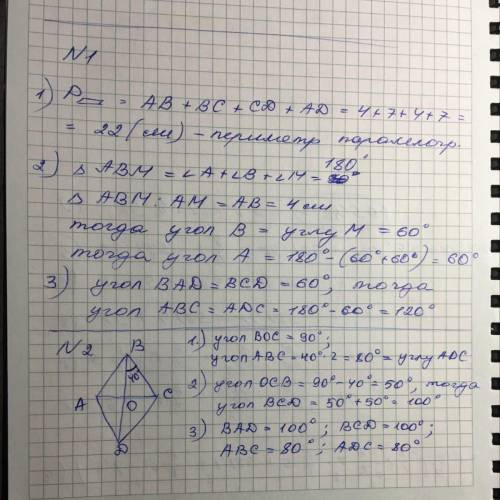 N1
1) P▱ = AB + BC + CD + AD = 4+7+4+7 =
= 22 (см) - периметр параллелогр.
2) △ ABM = ∠A + ∠B + ∠M = 180°
△ ABM: AM = AB = 4 см
тогда угол B = углу M = 60°
тогда угол A = 180° - (60° + 60°) = 60°
3) угол BAD = BCD = 60°, тогда
угол ABC = ADC = 180° - 60° = 120°
N2
B
40°
A
O
C
D
1.) угол BOC = 90°;
угол ABC = 40° · 2 = 80° = углу ADC
2) угол OCB = 90° - 40° = 50°, тогда
угол BCD = 50° + 50° = 100°
3) BAD = 100°; BCD = 100°;
ABC = 80°; ADC = 80°